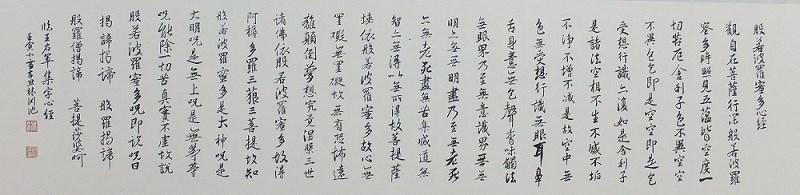 般若波羅蜜多心經
觀自在菩薩行深般若波羅
蜜多時照見五蘊皆空度一
切苦厄舍利子色不異空空
不異色色即是空空即是色
受想行識亦復如是舍利子
是諸法空相不生不滅不垢
不淨不增不減是故空中無
色無受想行識無眼耳鼻
舌身意無色聲香味觸法
無眼界乃至無意識界無無
明亦無無明盡乃至無老死
亦無老死盡無苦集滅道無
智亦無得以無所得故菩提薩
埵依般若波羅蜜多故心無
罣礙無罣礙故無有恐怖遠
離顛倒夢想究竟涅槃三世
諸佛依般若波羅蜜多故得
阿耨多羅三藐三菩提故知
般若波羅蜜多是大神咒是
大明咒是無上咒是無等等
咒能除一切苦真實不虛故說
般若波羅蜜多咒即說咒曰
揭諦揭諦 般羅揭諦
般羅僧揭諦 菩提莎婆呵
臨王右軍集字心經